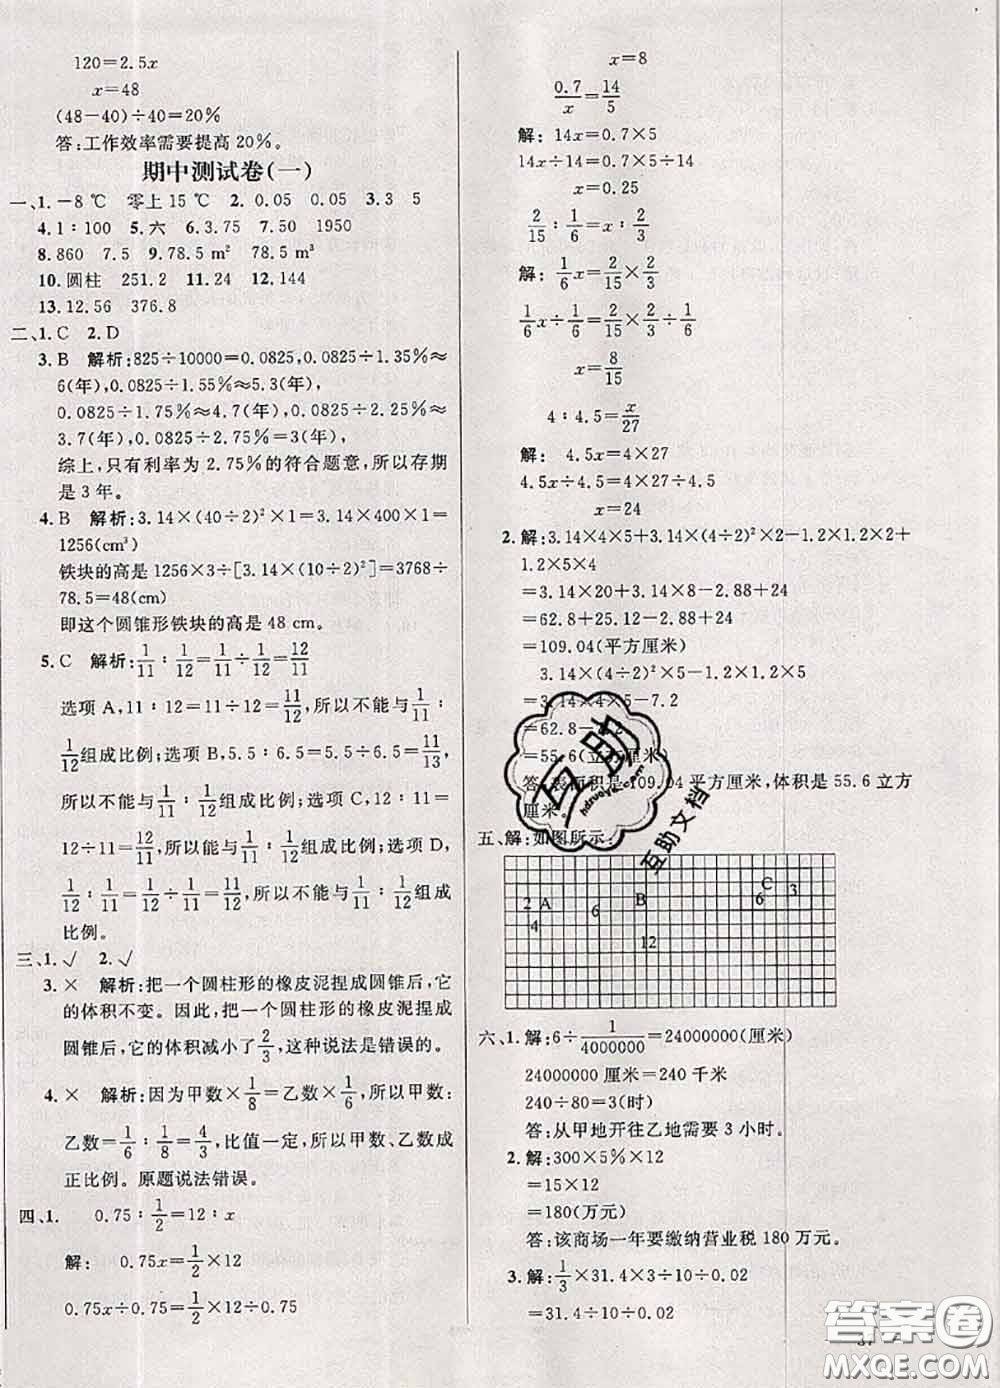 120=2.5x
x=48
(48-40)÷40=20%
答:工作效率需要提高 20%。
期中测试卷(一)
一、1.-8 ℃ 零上 15 ℃ 2.0.05 0.05 3.3 5
4.1∶100 5.六 6.3.75 7.50 1950
8.860 7.5 9.78.5 m² 78.5 m³
10.圆柱 251.2 11.24 12.144
13.12.56 376.8
二、1.C 2.D
3.B 解析:825÷10000=0.0825,0.0825÷1.35%≈
6(年),0.0825÷1.55%≈5.3(年),
0.0825÷1.75%≈4.7(年),0.0825÷2.25%≈
3.7(年),0.0825÷2.75%=3(年),
综上,只有利率为 2.75%的符合题意,所以存期
是 3 年。
4.B 解析:3.14×(40÷2)²×1=3.14×400×1=
1256(cm³)
铁块的高是 1256×3÷[3.14×(10÷2)²]=3768÷
78.5=48(cm)
即这个圆锥形铁块的高是 48 cm。
5.C 解析:1/11∶1/12=1/11÷1/12=12/11
选项 A,11∶12=11÷12=11/12,所以不能与1/11∶
1/12组成比例;选项 B,5.5∶6.5=5.5÷6.5=11/13,
所以不能与1/11∶1/12组成比例;选项 C,12∶11=
12÷11=12/11,所以能与1/11∶1/12组成比例;选项 D,
1/12∶1/11=1/12÷1/11=11/12,所以不能与1/11∶1/12组成
比例。
三、1.√ 2.√
3.× 解析:把一个圆柱形的橡皮泥捏成圆锥后,它
的体积不变。因此,把一个圆柱形的橡皮泥捏成
圆锥后,它的体积减小了2/3,这种说法是错误的。
4.× 解析:因为甲数×1/8=乙数×1/6,所以甲数∶
乙数=1/6∶1/8=4/3,比值一定,所以甲数、乙数成
正比例。原题说法错误。
四、1. 0.75∶1/2=12∶x
解: 0.75x=1/2×12
0.75x÷0.75=1/2×12÷0.75
x=8
0.7/x=14/5
解:14x=0.7×5
14x÷14=0.7×5÷14
x=0.25
2/15∶1/6=x∶2/3
解:1/6x=2/15×2/3
1/6x÷1/6=2/15×2/3÷1/6
x=8/15
4∶4.5=x/27
解: 4.5x=4×27
4.5x÷4.5=4×27÷4.5
x=24
2.解:3.14×4×5+3.14×(4÷2)²×2-1.2×1.2×2+
1.2×5×4
=3.14×20+3.14×8-2.88+24
=62.8+25.12-2.88+24
=109.04(平方厘米)
3.14×(4÷2)²×5-1.2×1.2×5
=3.14×4×5-7.2
=62.8-7.2
=55.6(立方厘米)
答:表面积是 109.04 平方厘米,体积是 55.6 立方
厘米
五、解:如图所示:
2 A 4 6 B 12 6 C 3
六、1.解:6÷1/4000000=24000000(厘米)
24000000 厘米=240 千米
240÷80=3(时)
答:从甲地开往乙地需要 3 小时。
2.解:300×5%×12
=15×12
=180(万元)
答:该商场一年要缴纳营业税 180 万元。
3.解:1/3×31.4×3÷10÷0.02
=31.4÷10÷0.02
37
互助
hdzuoye.com
互助文档
答案圈
MXQE.COM